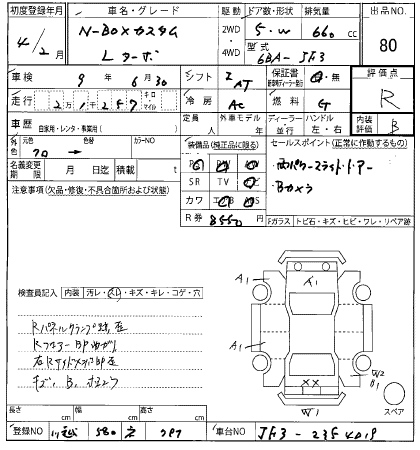 初度登録年月 車名・グレード 駆動 ドア数・形状 排気量 出品NO.
4/2月 N-BOXカスタム 2WD 5・W 660 cc 80
Lターボ 4WD 型式 6BA-JF3
車検 9年 6月 30 シフト IAT 保証書 有・無 評価点
走行 2万1千257 キロ マイル 冷房 AC 燃料 G R
車歴 自家用・レンタ・事業用( ) 定員 人 外車モデル 年 ディーラー 並行 ハンドル 左・右 内装評価 B
外色 元色 クロ → 色替 カラーNO 装備品(純正品に限る) セールスポイント(正常に作動するもの)
名義変更期限 月 日迄 積載 t
SR TV
カワ
R券 8550円
両パワースライドドアー
Bカメラ
注意事項(欠品・修復・不具合箇所および状態)
Fガラス トビ石・キズ・ヒビ・ワレ・リペア跡
検査員記入 内装 汚レ・スレ・キズ・キレ・コゲ・穴
Rパネルクランプ跡有
RフロアーBP曲がり
右Rサイドメンバ凹有
キズ、B、
A1 A1 A1 XX W2 B1 W1 スペア
長さ cm 幅 cm 高さ cm
登録NO 580 車台NO JF3-2354019